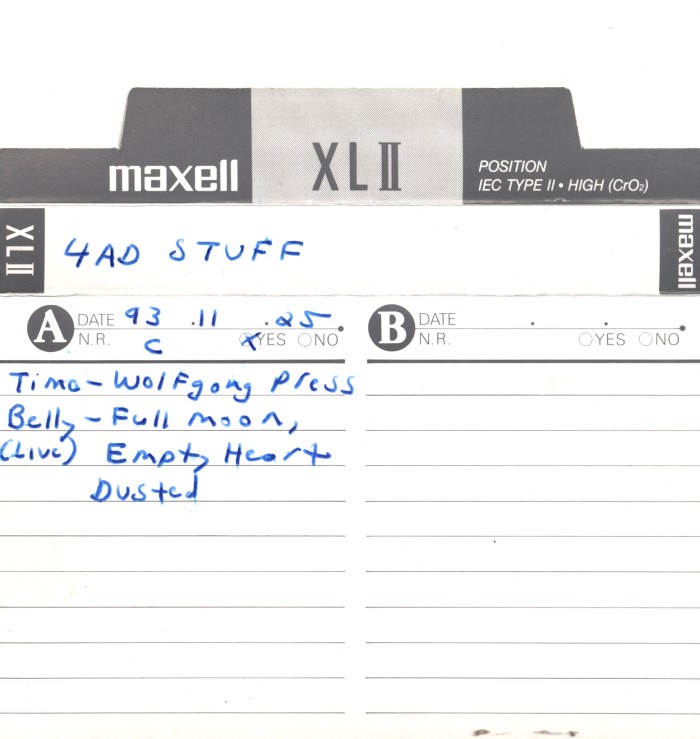 maxell XLII POSITION
IEC TYPE II • HIGH (CrO₂)
XLII 4AD STUFF maxell
A DATE 93 .11 .25
N.R. C X YES NO
Time - Wolfgong Press
Belly - Full Moon,
(Live) Empty Heart
Dusted
B DATE . .
N.R. YES NO